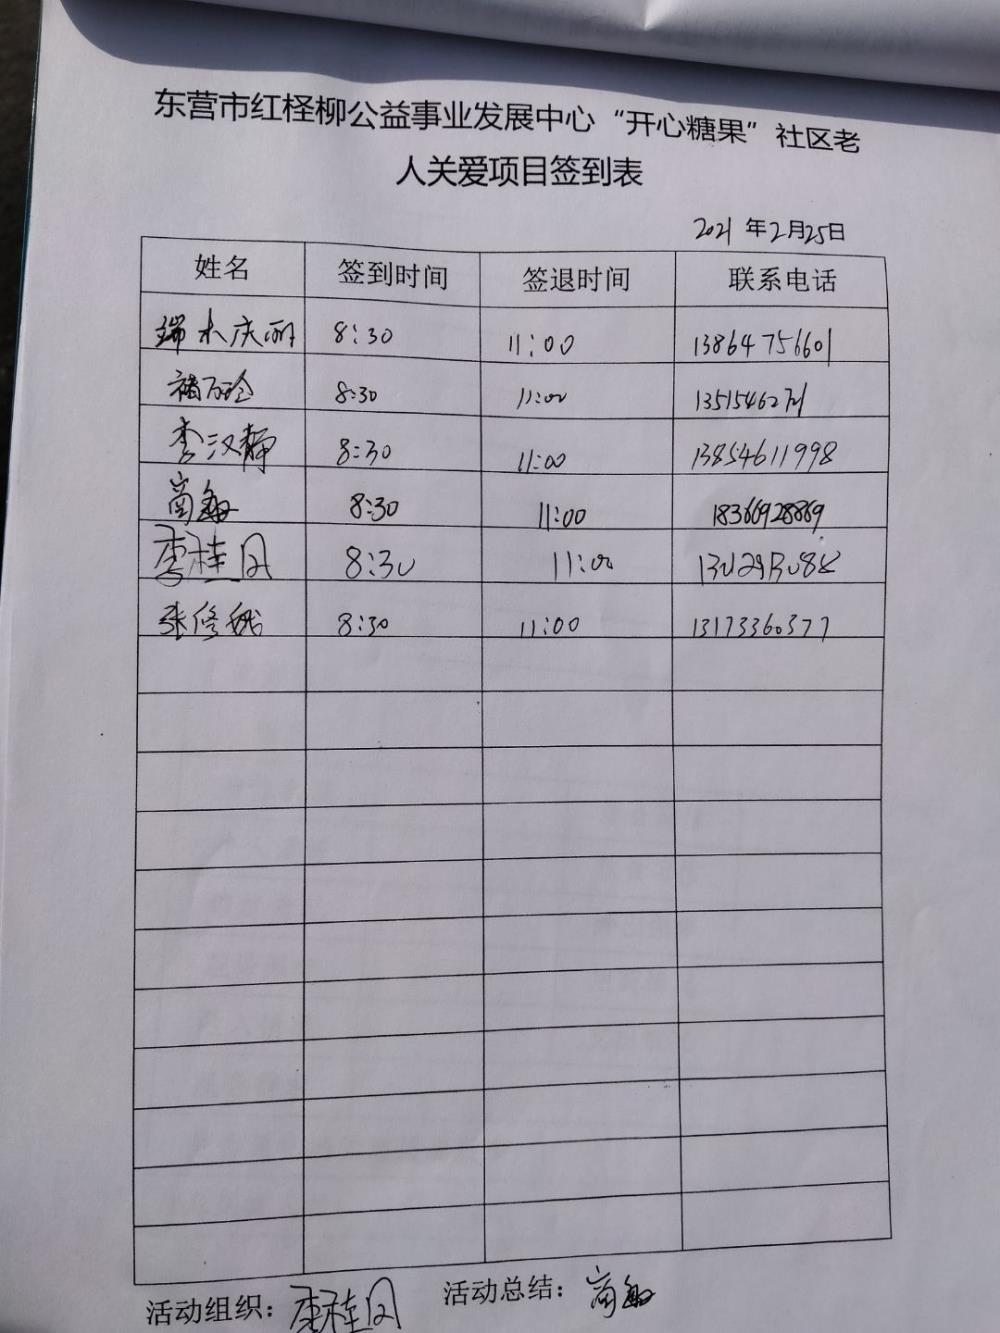 东营市红柽柳公益事业发展中心“开心糖果”社区老
人关爱项目签到表
2021年2月25日
姓名 签到时间 签退时间 联系电话
8:30 11:00 13864756601
8:30 11:00
李汉静 8:30 11:00 13854611998
尚敏 8:30 11:00 18366928869
李桂风 8:30 11:00
张修娥 8:30 11:00 13173360377
活动组织：李桂风 活动总结：尚敏